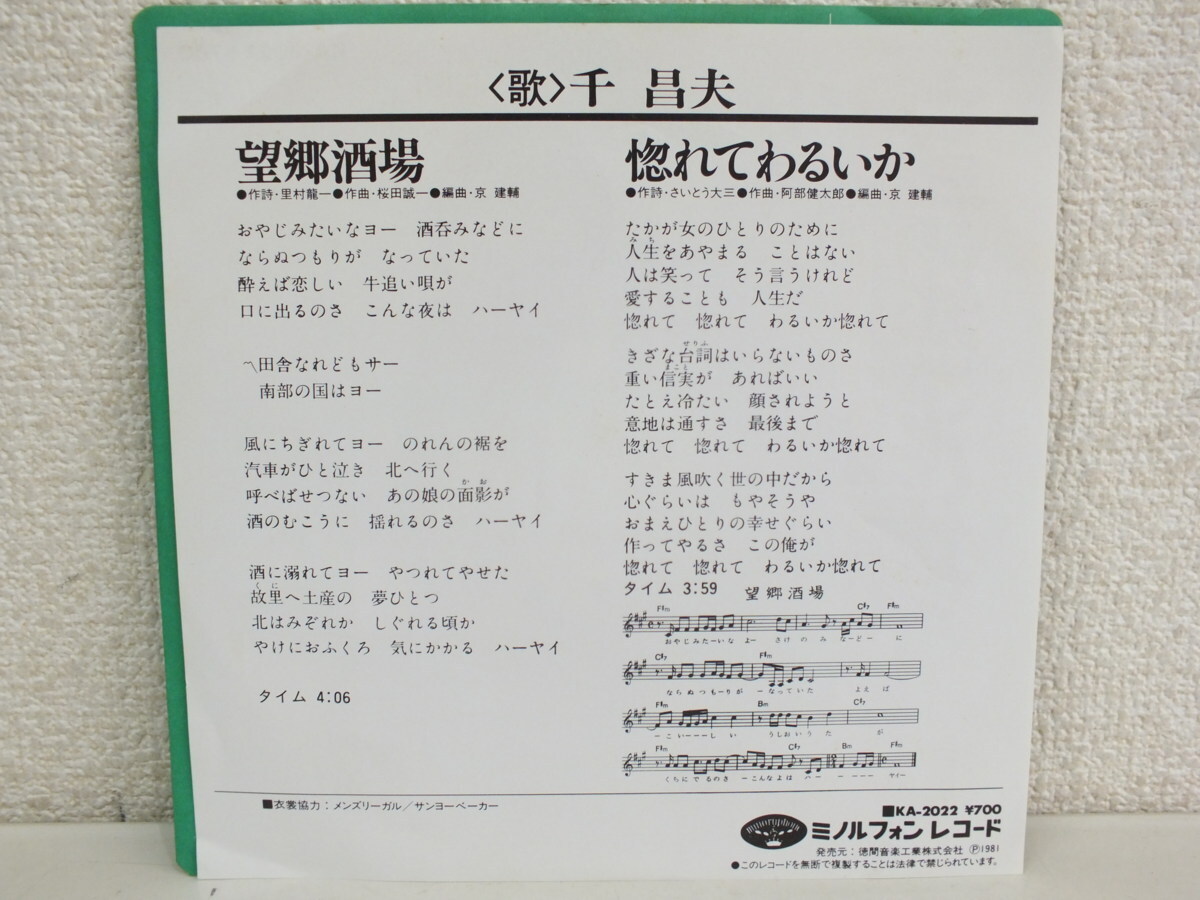 〈歌〉千 昌夫
望郷酒場
●作詩・里村龍一●作曲・桜田誠一●編曲・京 建輔
おやじみたいなヨー 酒呑みなどに
ならぬつもりが なっていた
酔えば恋しい 牛追い唄が
口に出るのさ こんな夜は ハーヤイ
〽田舎なれどもサー
南部の国はヨー
風にちぎれてヨー のれんの裾を
汽車がひと泣き 北へ行く
呼べばせつない あの娘の面影が
かお
酒のむこうに 揺れるのさ ハーヤイ
酒に溺れてヨー やつれてやせた
くに
故里へ土産の 夢ひとつ
北はみぞれか しぐれる頃か
やけにおふくろ 気にかかる ハーヤイ
タイム 4:06
惚れてわるいか
●作詩・さいとう大三●作曲・阿部健太郎●編曲・京 建輔
たかが女のひとりのために
みち
人生をあやまる ことはない
人は笑って そう言うけれど
愛することも 人生だ
惚れて 惚れて わるいか惚れて
せりふ
きざな台詞はいらないものさ
まこと
重い信実が あればいい
たとえ冷たい 顔されようと
意地は通すさ 最後まで
惚れて 惚れて わるいか惚れて
すきま風吹く世の中だから
心ぐらいは もやそうや
おまえひとりの幸せぐらい
作ってやるさ この俺が
惚れて 惚れて わるいか惚れて
タイム 3:59 望郷酒場
F♯m C♯7 F♯m
おやじみたーいな よー さけ の み なーどー に
C♯7 F♯m
なら ぬ つもーりが ーなっていた よえ ば
F♯m Bm C♯7
ーこいーーーし い うしおいうた が
F♯m C♯7 Bm F♯m
くちに で るのさ ーこんなよは ハー ーーーー ヤイー
■衣裳協力：メンズリーガル／サンヨーベーカー
■KA-2022 ¥700
minoruphone
ミノルフォン レコード
発売元：徳間音楽工業株式会社 Ⓟ1981
●このレコードを無断で複製することは法律で禁じられています。